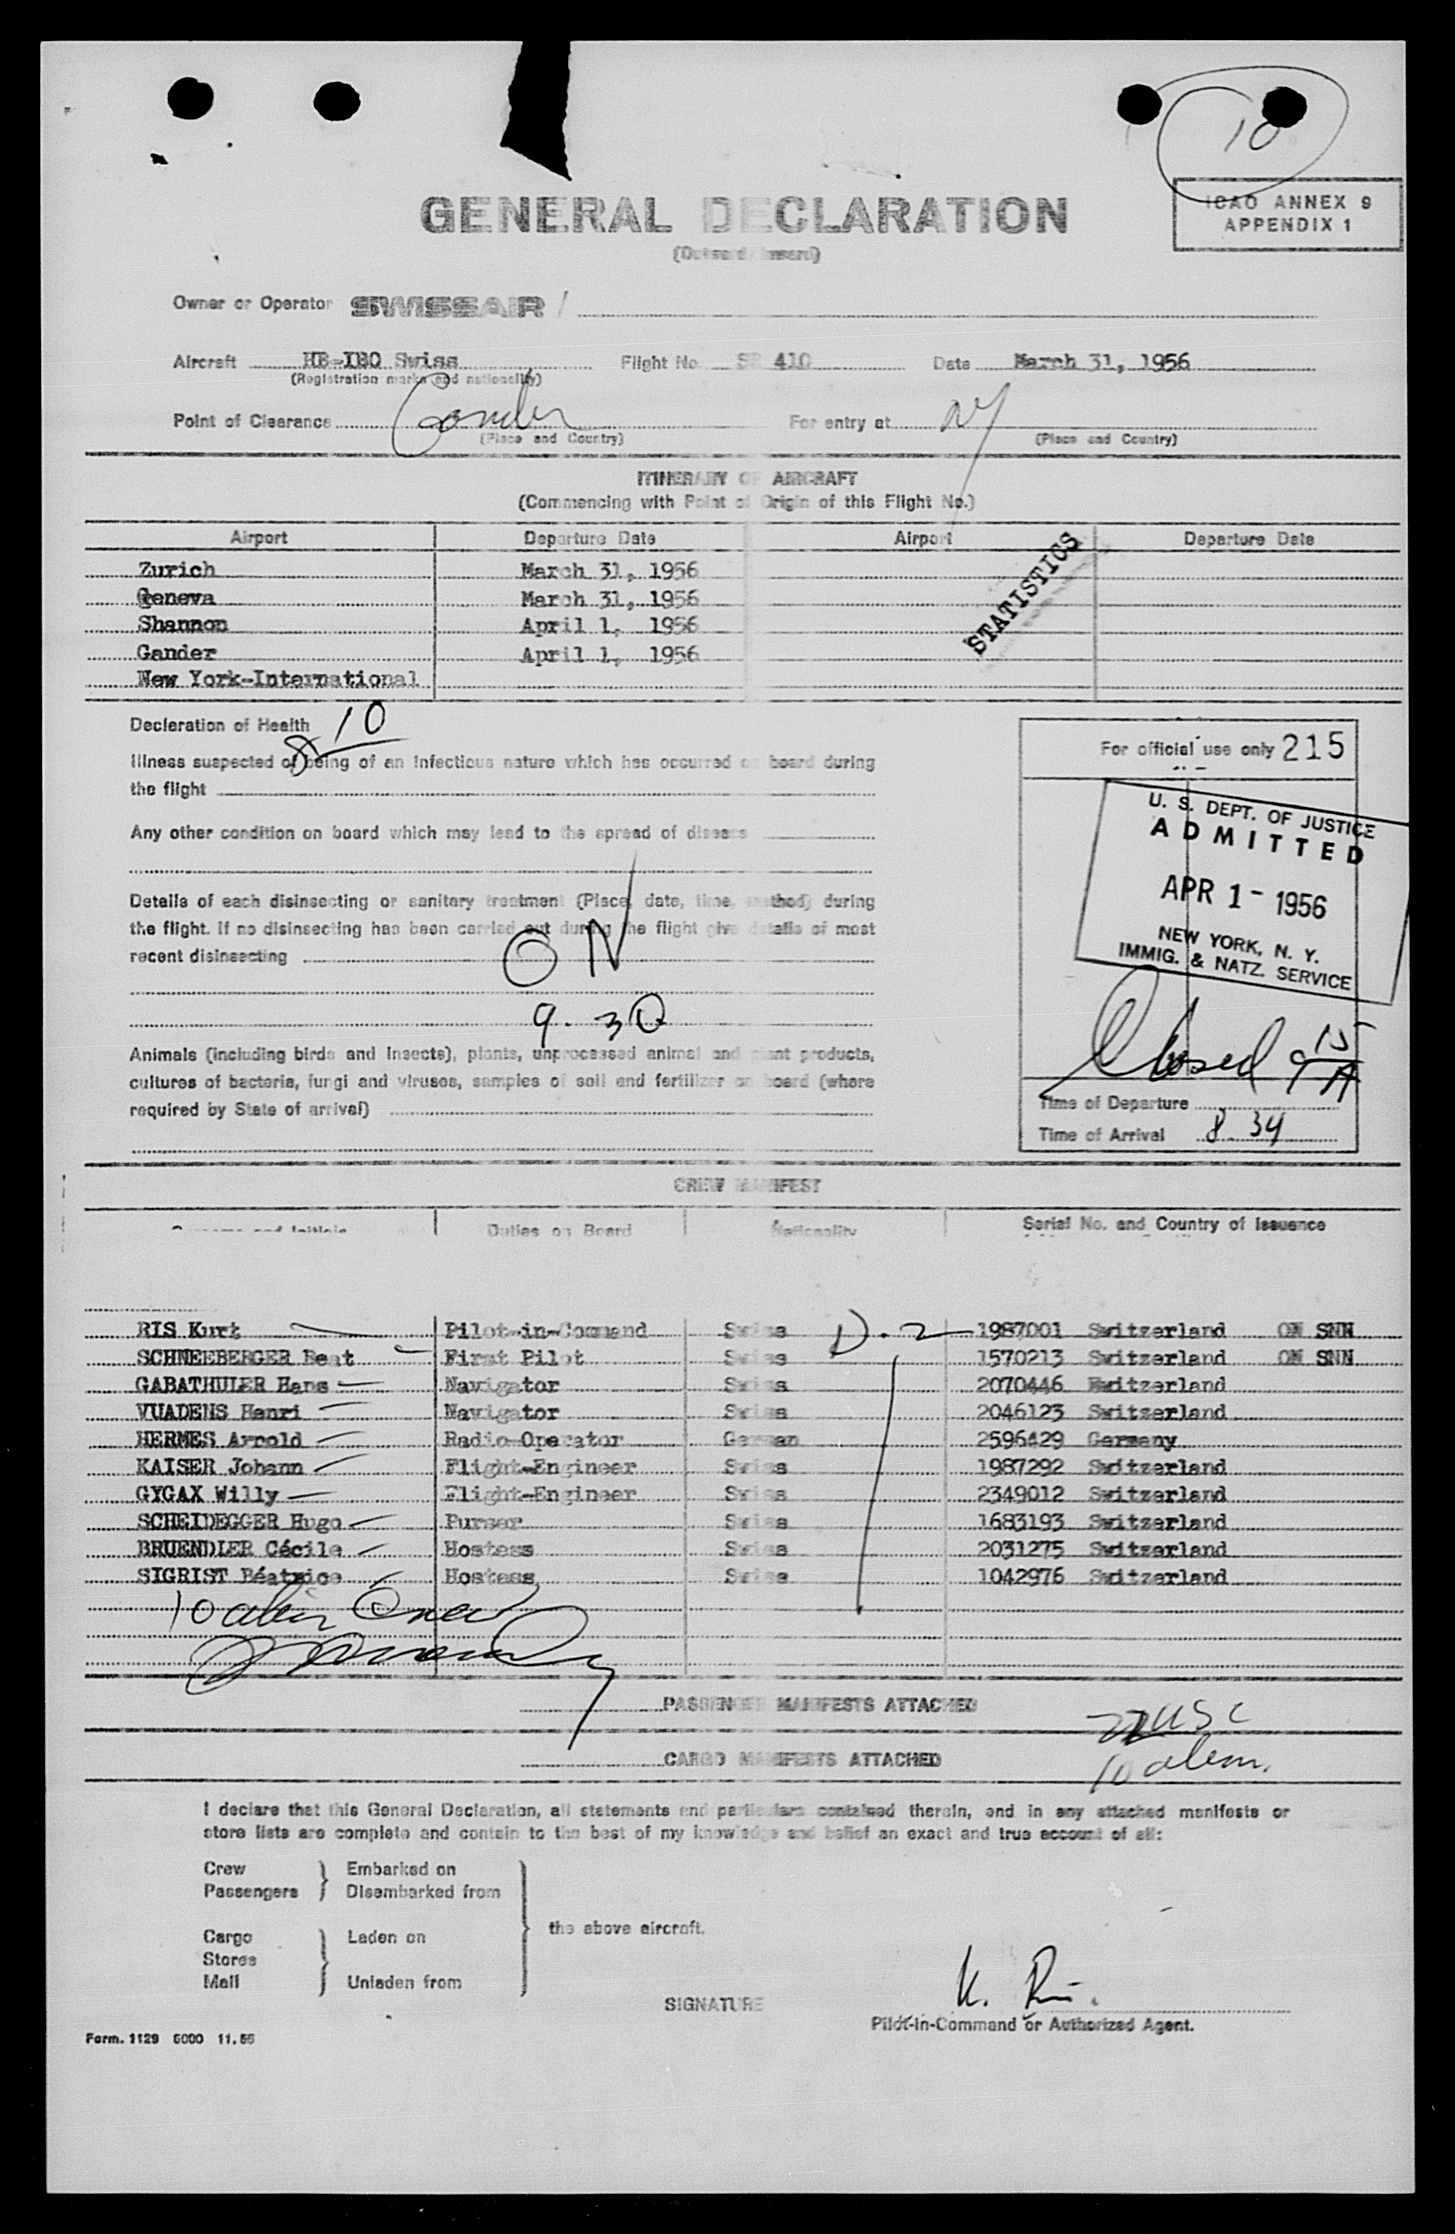 10
GENERAL DECLARATION
(Outward/Inward)
ICAO ANNEX 9
APPENDIX 1
Owner or Operator SWISSAIR /
Aircraft HB-IBO Swiss Flight No SR 410 Date March 31, 1956
(Registration marks and nationality)
Point of Clearance Gander For entry at NY
(Place and Country) (Place and Country)
ITINERARY OF AIRCRAFT
(Commencing with Point of Origin of this Flight No.)
Airport Departure Date Airport Departure Date
Zurich March 31, 1956
Geneva March 31, 1956
Shannon April 1, 1956
Gander April 1, 1956
New York-International
STATISTICS
Declaration of Health 10
Illness suspected of being of an infectious nature which has occurred on board during
the flight
Any other condition on board which may lead to the spread of disease
Details of each disinsecting or sanitary treatment (Place, date, time, method) during
the flight. If no disinsecting has been carried out during the flight give details of most
recent disinsecting
ON
9.30
Animals (including birds and insects), plants, unprocessed animal and plant products,
cultures of bacteria, fungi and viruses, samples of soil and fertilizer on board (where
required by State of arrival)
For official use only 215
U. S. DEPT. OF JUSTICE
ADMITTED
APR 1 - 1956
NEW YORK, N. Y.
IMMIG. & NATZ. SERVICE
Closed 9 15 A
Time of Departure
Time of Arrival 8.34
CREW MANIFEST
Duties on Board Nationality Serial No. and Country of Issuance
RIS Kurt Pilot-in-Command Swiss D.2 1987001 Switzerland ON SNN
SCHNEEBERGER Beat First Pilot Swiss 1570213 Switzerland ON SNN
GABATHULER Hans Navigator Swiss 2070446 Switzerland
VUADENS Henri Navigator Swiss 2046123 Switzerland
HERMES Arnold Radio-Operator German 2596429 Germany
KAISER Johann Flight-Engineer Swiss 1987292 Switzerland
GYGAX Willy Flight-Engineer Swiss 2349012 Switzerland
SCHEIDEGGER Hugo Purser Swiss 1683193 Switzerland
BRUENDLER Cécile Hostess Swiss 2031275 Switzerland
SIGRIST Béatrice Hostess Swiss 1042976 Switzerland
10 alien Crew
PASSENGER MANIFESTS ATTACHED
USC
CARGO MANIFESTS ATTACHED
10 alien.
I declare that this General Declaration, all statements and particulars contained therein, and in any attached manifests or
store lists are complete and contain to the best of my knowledge and belief an exact and true account of all:
Crew Embarked on
Passengers Disembarked from
the above aircraft.
Cargo Laden on
Stores
Mail Unladen from
SIGNATURE K. Ris.
Pilot-in-Command or Authorized Agent.
Form. 1129 5000 11.55